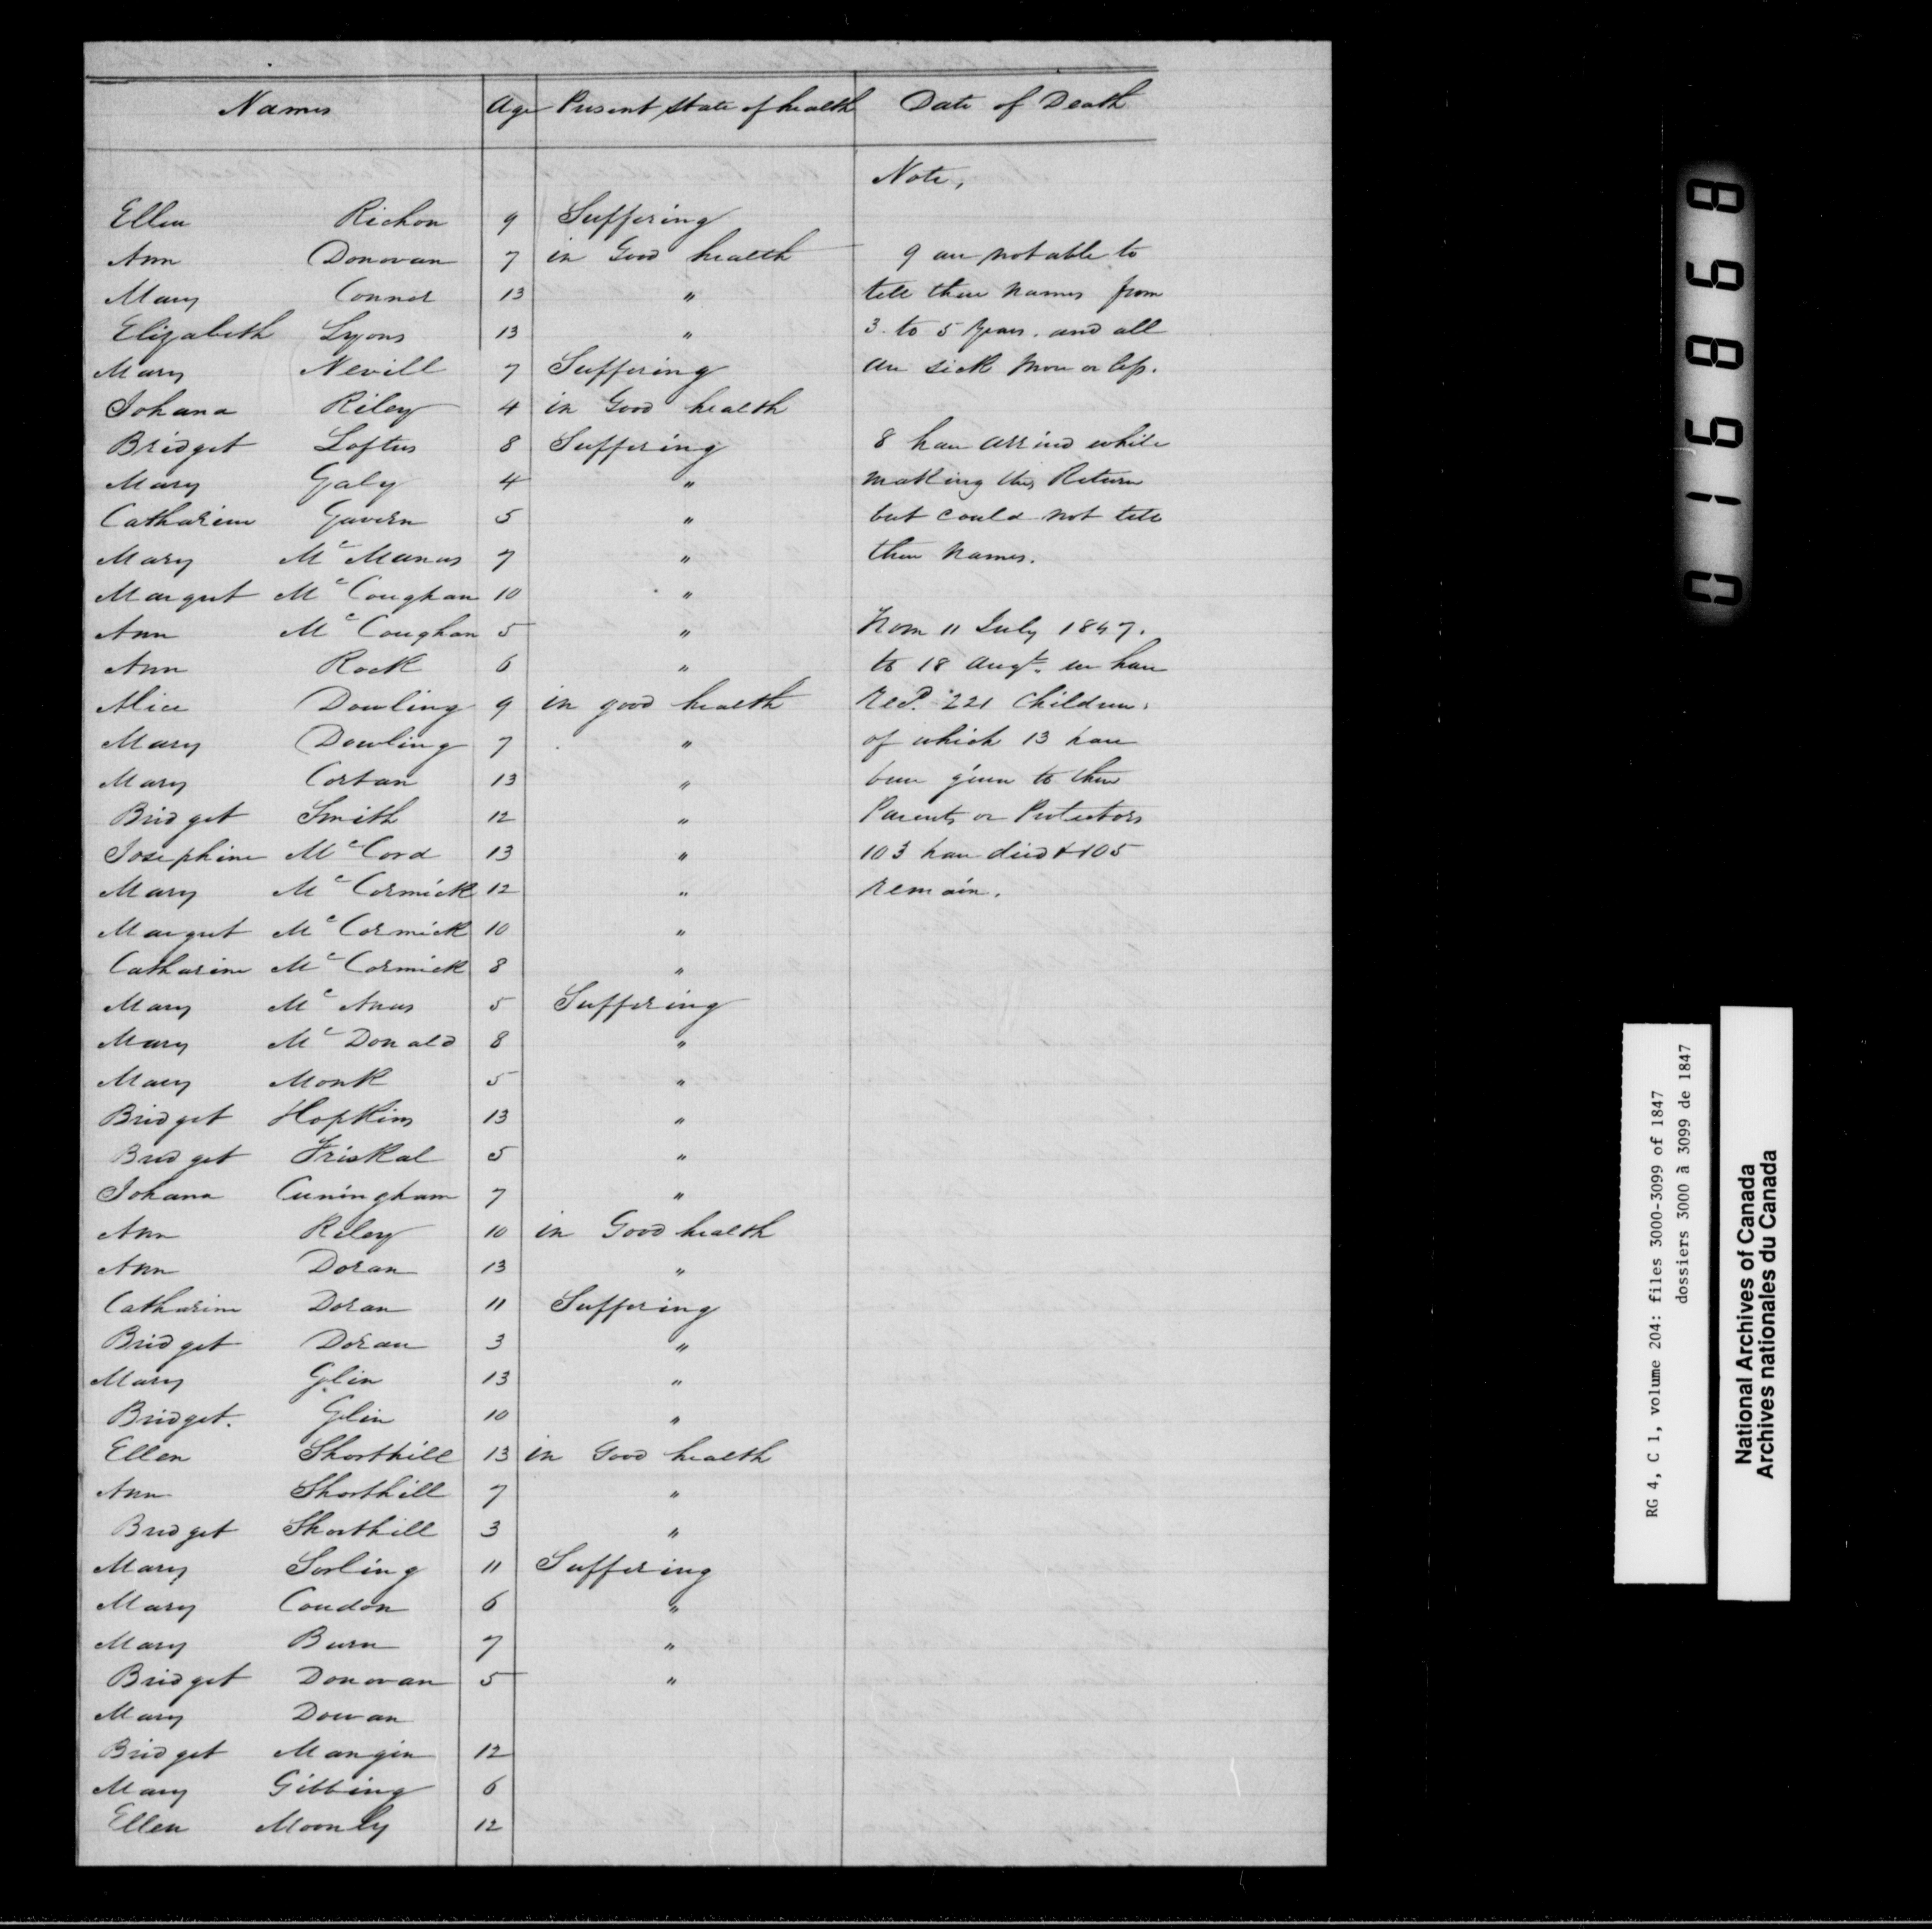 Names Age Present State of health Date of Death
Note,
Ellen Richon 9 Suffering
Ann Donovan 7 in Good health 9 are not able to
Mary Connor 13 " tell there names from
Elizabeth Lyons 13 " 3 to 5 years. and all
Mary Nevill 7 Suffering are sick more or less.
Johana Riley 4 in Good health
Bridget Loftus 8 Suffering 8 have arrived while
Mary Galy 4 " making this Return
Catharine Gavern 5 " but could not tell
Mary Mc Manus 7 " there names.
Margret Mc Coughan 10 "
Ann Mc Coughan 5 " From 11 July 1847.
Ann Rock 6 " to 18 Augt. we have
Alice Dowling 9 in good health Recd. 221 Children,
Mary Dowling 7 " of which 13 have
Mary Cortan 13 " been given to there
Bridget Smith 12 " Parents or Protectors
Josephine Mc Cord 13 " 103 have died & 105
Mary Mc Cormick 12 " remain.
Margret Mc Cormick 10 "
Catharine Mc Cormick 8 "
Mary Mc Anus 5 Suffering
Mary Mc Donald 8 "
Mary Monk 5 "
Bridget Hopkins 13 "
Bridget Friskal 5 "
Johana Cuningham 7 "
Ann Riley 10 in Good health
Ann Doran 13 "
Catharine Doran 11 Suffering
Bridget Doran 3 "
Mary Glin 13 "
Bridget. Glin 10 "
Ellen Shorthill 13 in Good health
Ann Shorthill 7 "
Bridget Shorthill 3 "
Mary Sorling 11 Suffering
Mary Coudon 6 "
Mary Burn 7 "
Bridget Donovan 5 "
Mary Dowan
Bridget Mangin 12
Mary Gibbing 6
Ellen Moonly 12
016968
RG 4, C 1, volume 204: files 3000-3099 of 1847
dossiers 3000 à 3099 de 1847
National Archives of Canada
Archives nationales du Canada